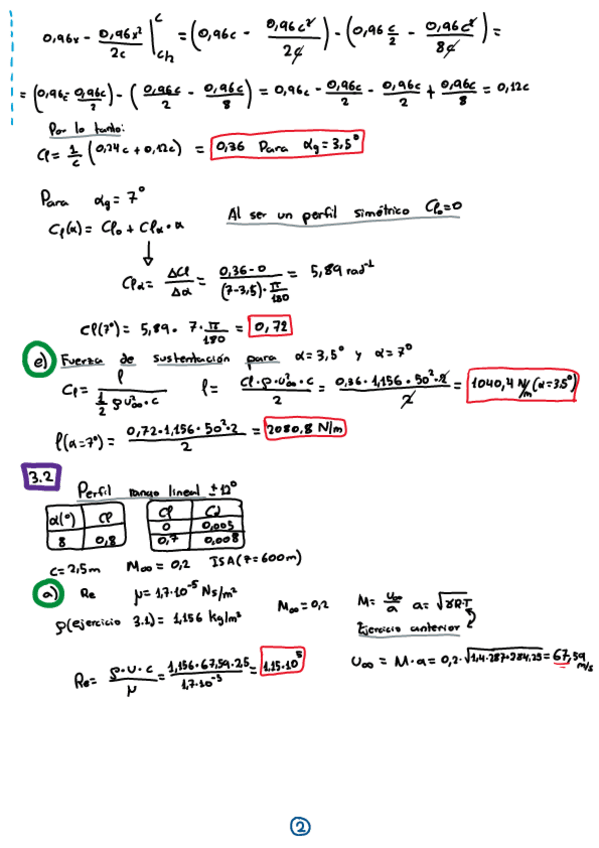 0,96x - 0,96x²/2c |_{c/2}^{c} = (0,96c - 0,96c²/2c) - (0,96 c/2 - 0,96c²/8c) =
= (0,96c - 0,96c/2) - (0,96c/2 - 0,96c/8) = 0,96c - 0,96c/2 - 0,96c/2 + 0,96c/8 = 0,12c
Por lo tanto:
Cl = 1/c (0,24c + 0,12c) = 0,36 Para αg = 3,5°
Para αg = 7°
Al ser un perfil simétrico Cl₀ = 0
Cl(α) = Cl₀ + Clα · α
Clα = ΔCl/Δα = (0,36 - 0)/((7-3,5) · π/180) = 5,89 rad⁻¹
Cl(7°) = 5,89 · 7 · π/180 = 0,72
e) Fuerza de sustentación para α = 3,5° y α = 7°
Cl = l/(1/2 ρ U∞² · c) l = (Cl · ρ · U∞² · c)/2 = (0,36 · 1,156 · 50² · 2)/2 = 1040,4 N/m (α = 3,5°)
l(α = 7°) = (0,72 · 1,156 · 50² · 2)/2 = 2080,8 N/m
3.2
Perfil rango lineal ± 12°
α(°) Cl Cl Cd
0 0,005
8 0,8 0,7 0,008
c = 2,5m M∞ = 0,2 ISA (z = 600m)
a) Re μ = 1,7·10⁻⁵ Ns/m²
M∞ = 0,2 M = U∞/a a = √γR·T
ρ(ejercicio 3.1) = 1,156 kg/m³
Ejercicio anterior
Re = ρ·U·c/μ = 1,156·67,59·2,5/1,7·10⁻⁵ = 1,15·10⁸
U∞ = M·a = 0,2·√1,4·287·284,25 = 67,59 m/s
2